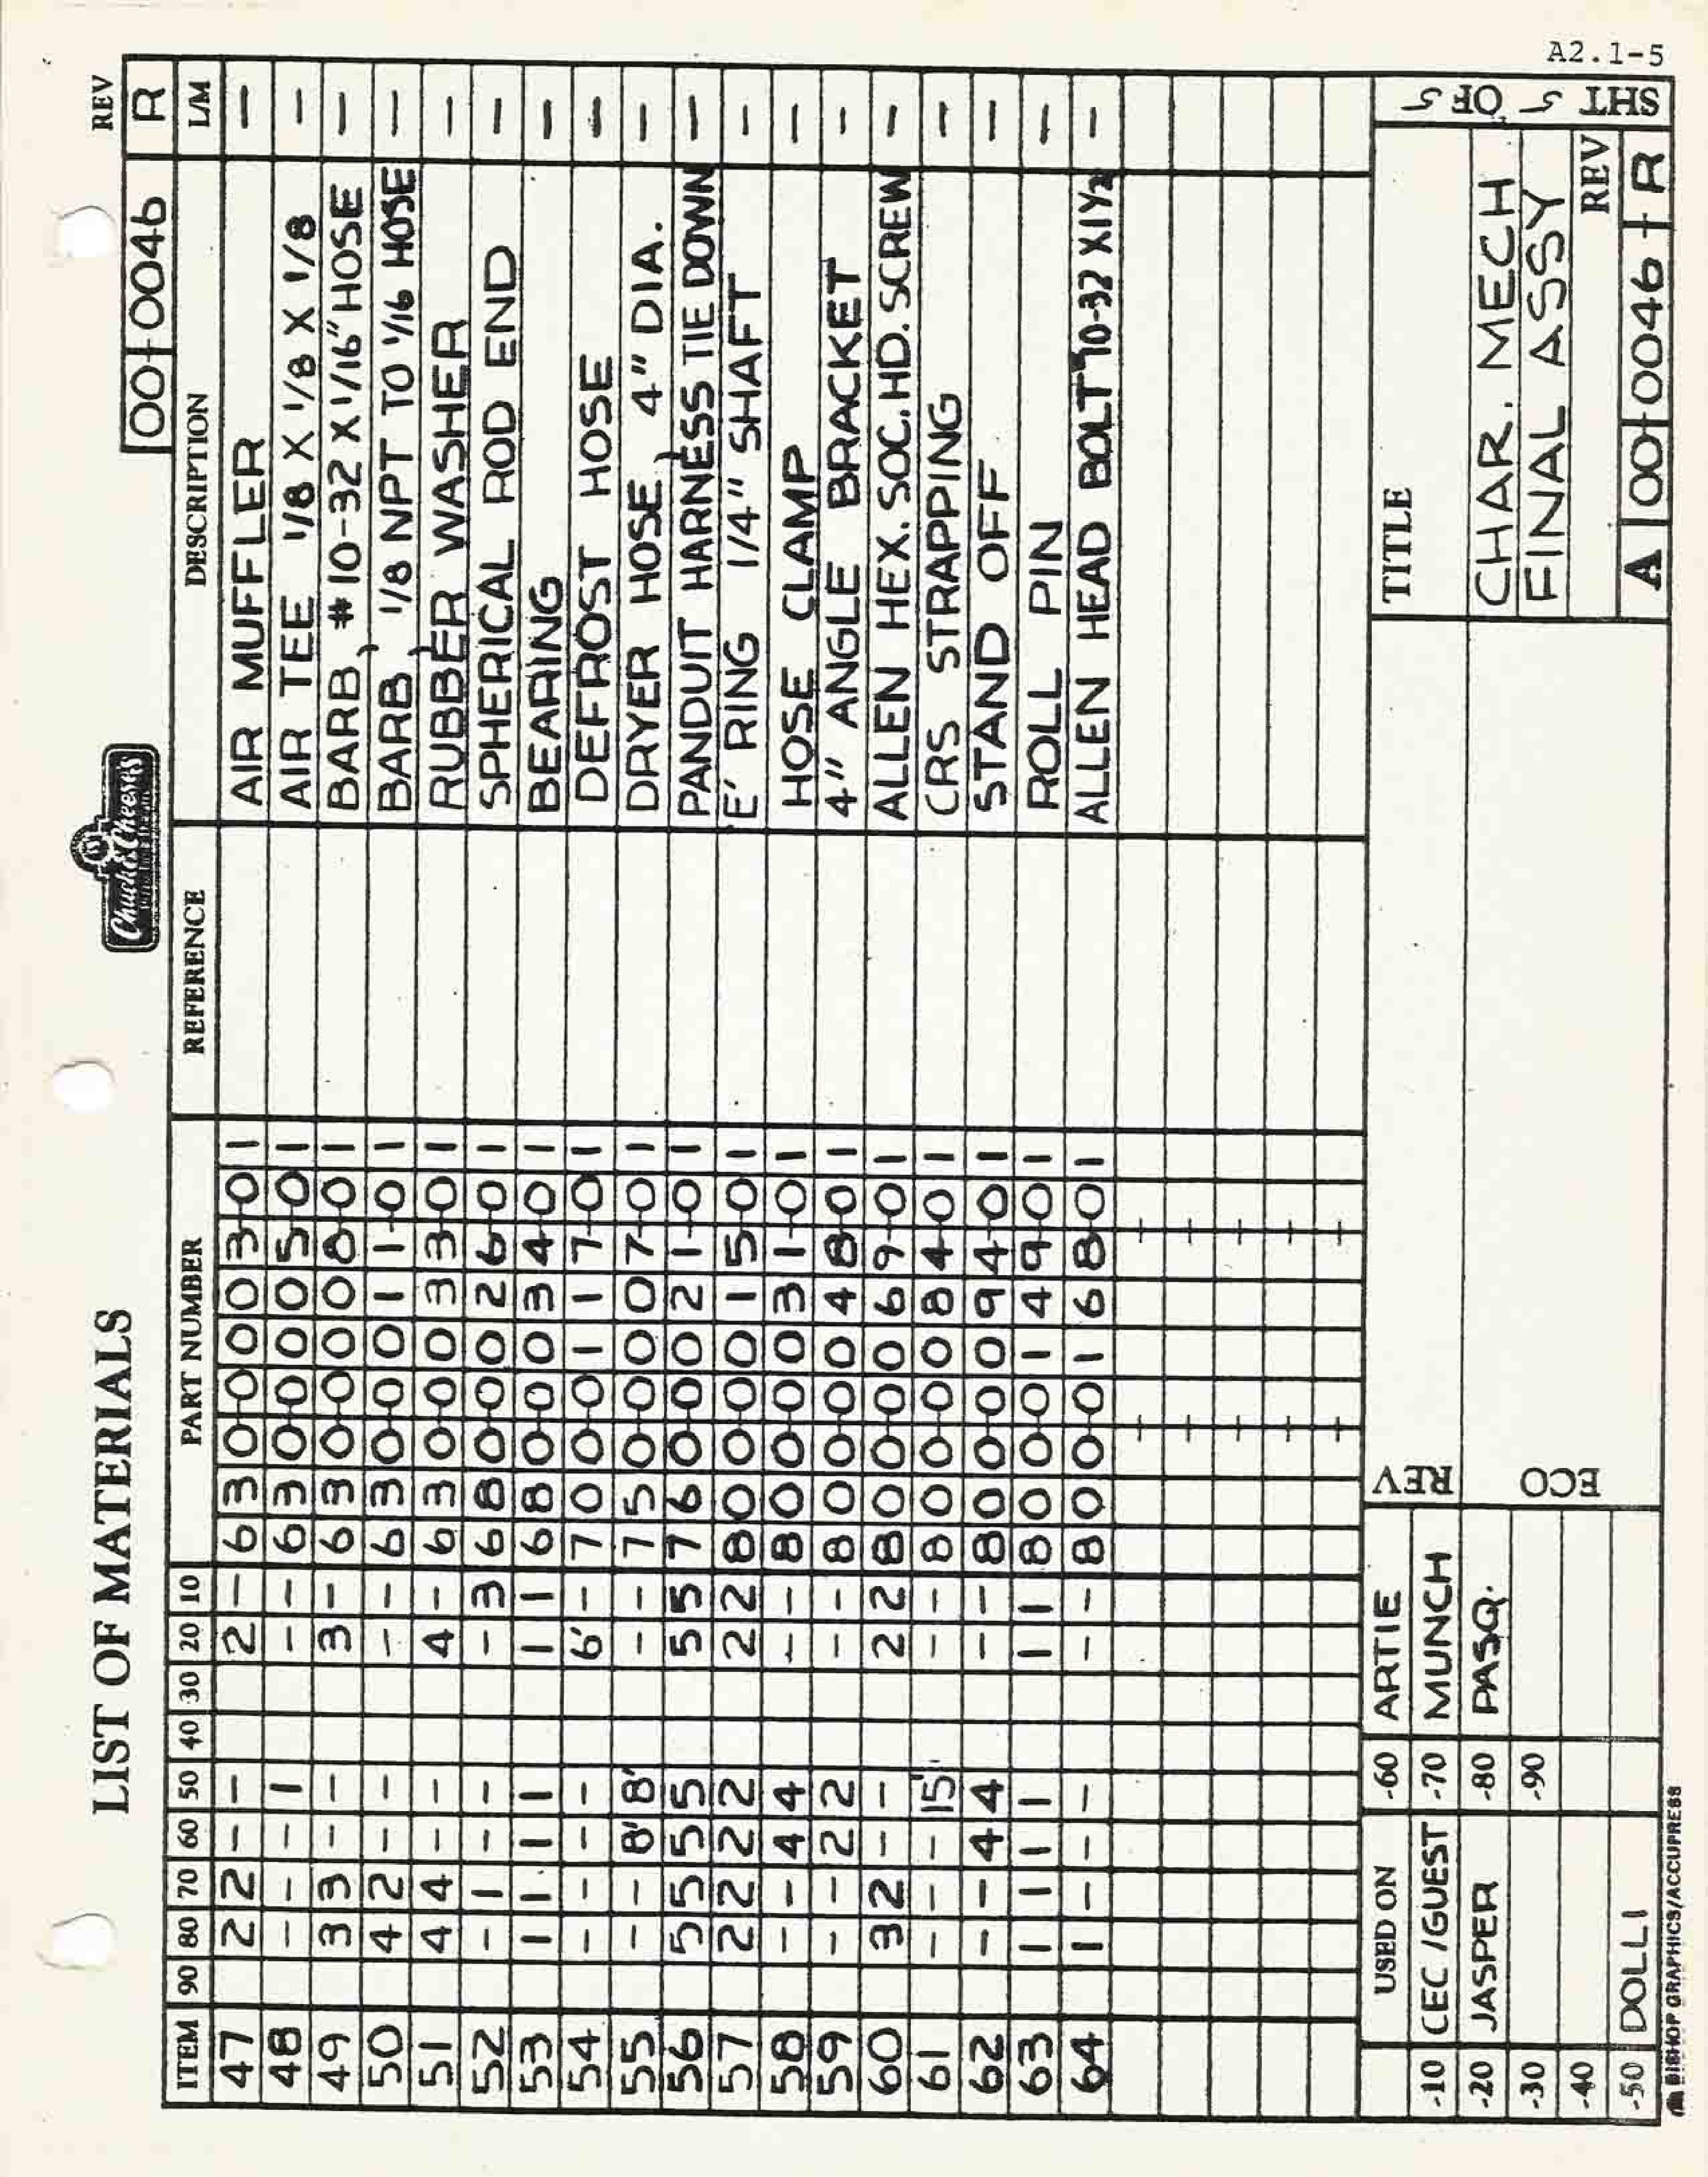 A2.1-5
LIST OF MATERIALS
Chuck E. Cheese's
REV
00-0046 R
ITEM 90 80 70 60 50 40 30 20 10 PART NUMBER REFERENCE DESCRIPTION L/M
47 2 2 - - 2 - 630-0003-01 AIR MUFFLER -
48 - - - 1 - - 630-0005-01 AIR TEE 1/8 X 1/8 X 1/8 -
49 3 3 - - 3 - 630-0008-01 BARB, #10-32 X 1/16" HOSE -
50 4 2 - - - - 630-0011-01 BARB, 1/8 NPT TO 1/16 HOSE -
51 4 4 - - 4 - 630-0033-01 RUBBER WASHER -
52 - 1 - - - 3 680-0026-01 SPHERICAL ROD END -
53 1 1 1 1 1 1 680-0034-01 BEARING -
54 - - - - 6' - 700-0117-01 DEFROST HOSE -
55 - - 8' 8' - - 750-0007-01 DRYER HOSE, 4" DIA. -
56 5 5 5 5 5 5 760-0021-01 PANDUIT HARNESS TIE DOWN -
57 2 2 2 2 2 2 800-0015-01 'E' RING 1/4" SHAFT -
58 - - 4 4 - - 800-0031-01 HOSE CLAMP -
59 - - 2 2 - - 800-0048-01 4" ANGLE BRACKET -
60 3 2 - - 2 2 800-0069-01 ALLEN HEX. SOC. HD. SCREW -
61 - - - 15' - - 800-0084-01 CRS STRAPPING -
62 - - 4 4 - - 800-0094-01 STAND OFF -
63 1 1 1 1 1 1 800-0149-01 ROLL PIN -
64 1 - - - - - 800-0168-01 ALLEN HEAD BOLT 10-32 X 1 1/2 -
USED ON
-10 CEC/GUEST
-20 JASPER
-30
-40
-50 DOLLI
-60 ARTIE
-70 MUNCH
-80 PASQ.
-90
REV
ECO
TITLE
CHAR. MECH
FINAL ASSY
REV
A 00-0046 - R
SHT 5 OF 5
BISHOP GRAPHICS/ACCUPRESS